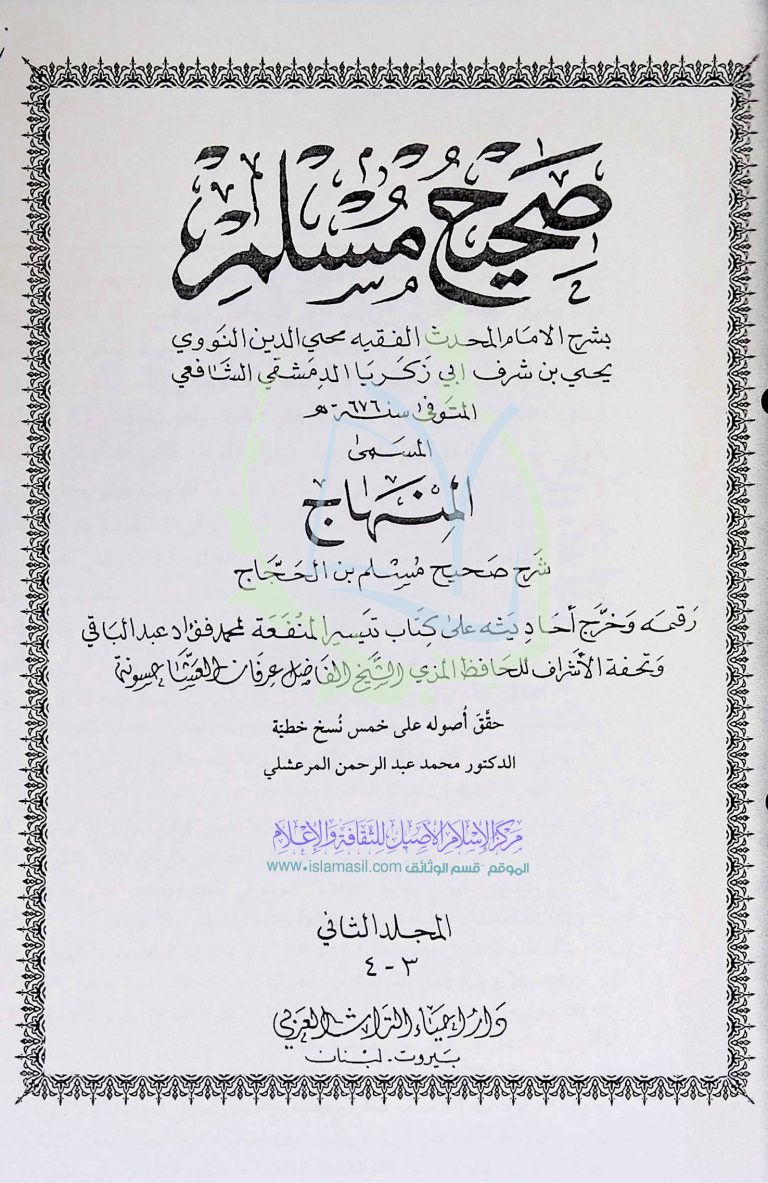 صَحِيحُ مُسْلِمْ
بشرح الامام المحدث الفقيه محيي الدين النووي
يحيى بن شرف ابي زكريا الدمشقي الشافعي
المتوفى سنة ٦٧٦ هـ
المسمى
المِنْهَاج
شَرح صَحيح مُسْلم بن الحَجَّاج
رقمه وَخرَّج أحَاديثه على كتاب تيسير المنفعة لمحمد فؤاد عبد الباقي
وتحفة الأشراف للحافظ المزي الشيخ الفاضل عرفان العشا حسونة
حقّق أصوله على خمس نُسخ خطيّة
الدكتور محمد عبد الرحمن المرعشلي
مركز الإسلام الأصيل للثقافة والإعلام
الموقع - قسم الوثائق www.islamasil.com
المجلد الثاني
٣ - ٤
دار إحياء التراث العربي
بيروت - لبنان